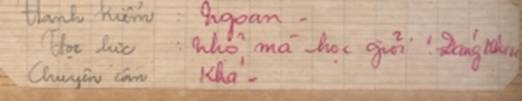 Hạnh kiểm : Ngoan -
Học lực : Nhỏ mà học giỏi ! Đáng khen
Chuyên cần Khá -